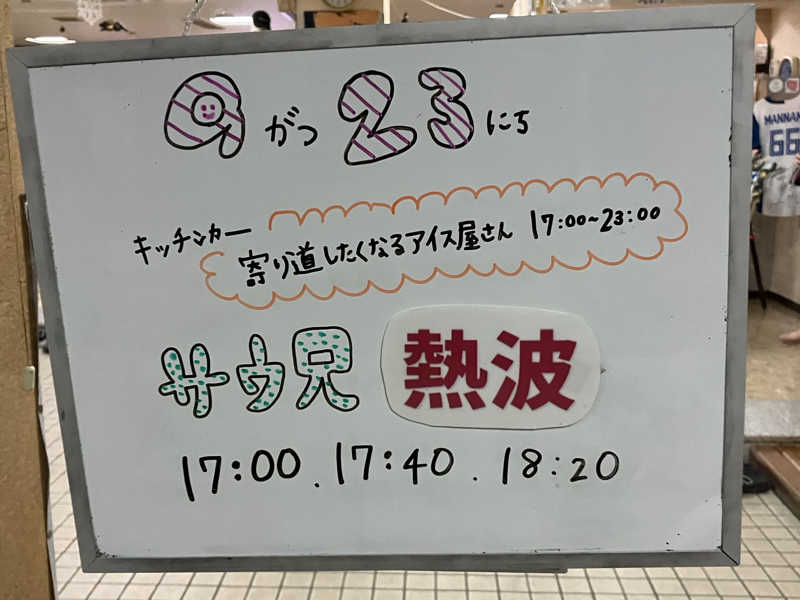 9がつ23にち
キッチンカー 寄り道したくなるアイス屋さん 17:00~23:00
サウ兄 熱波
17:00.17:40.18:20
MANNAM
66